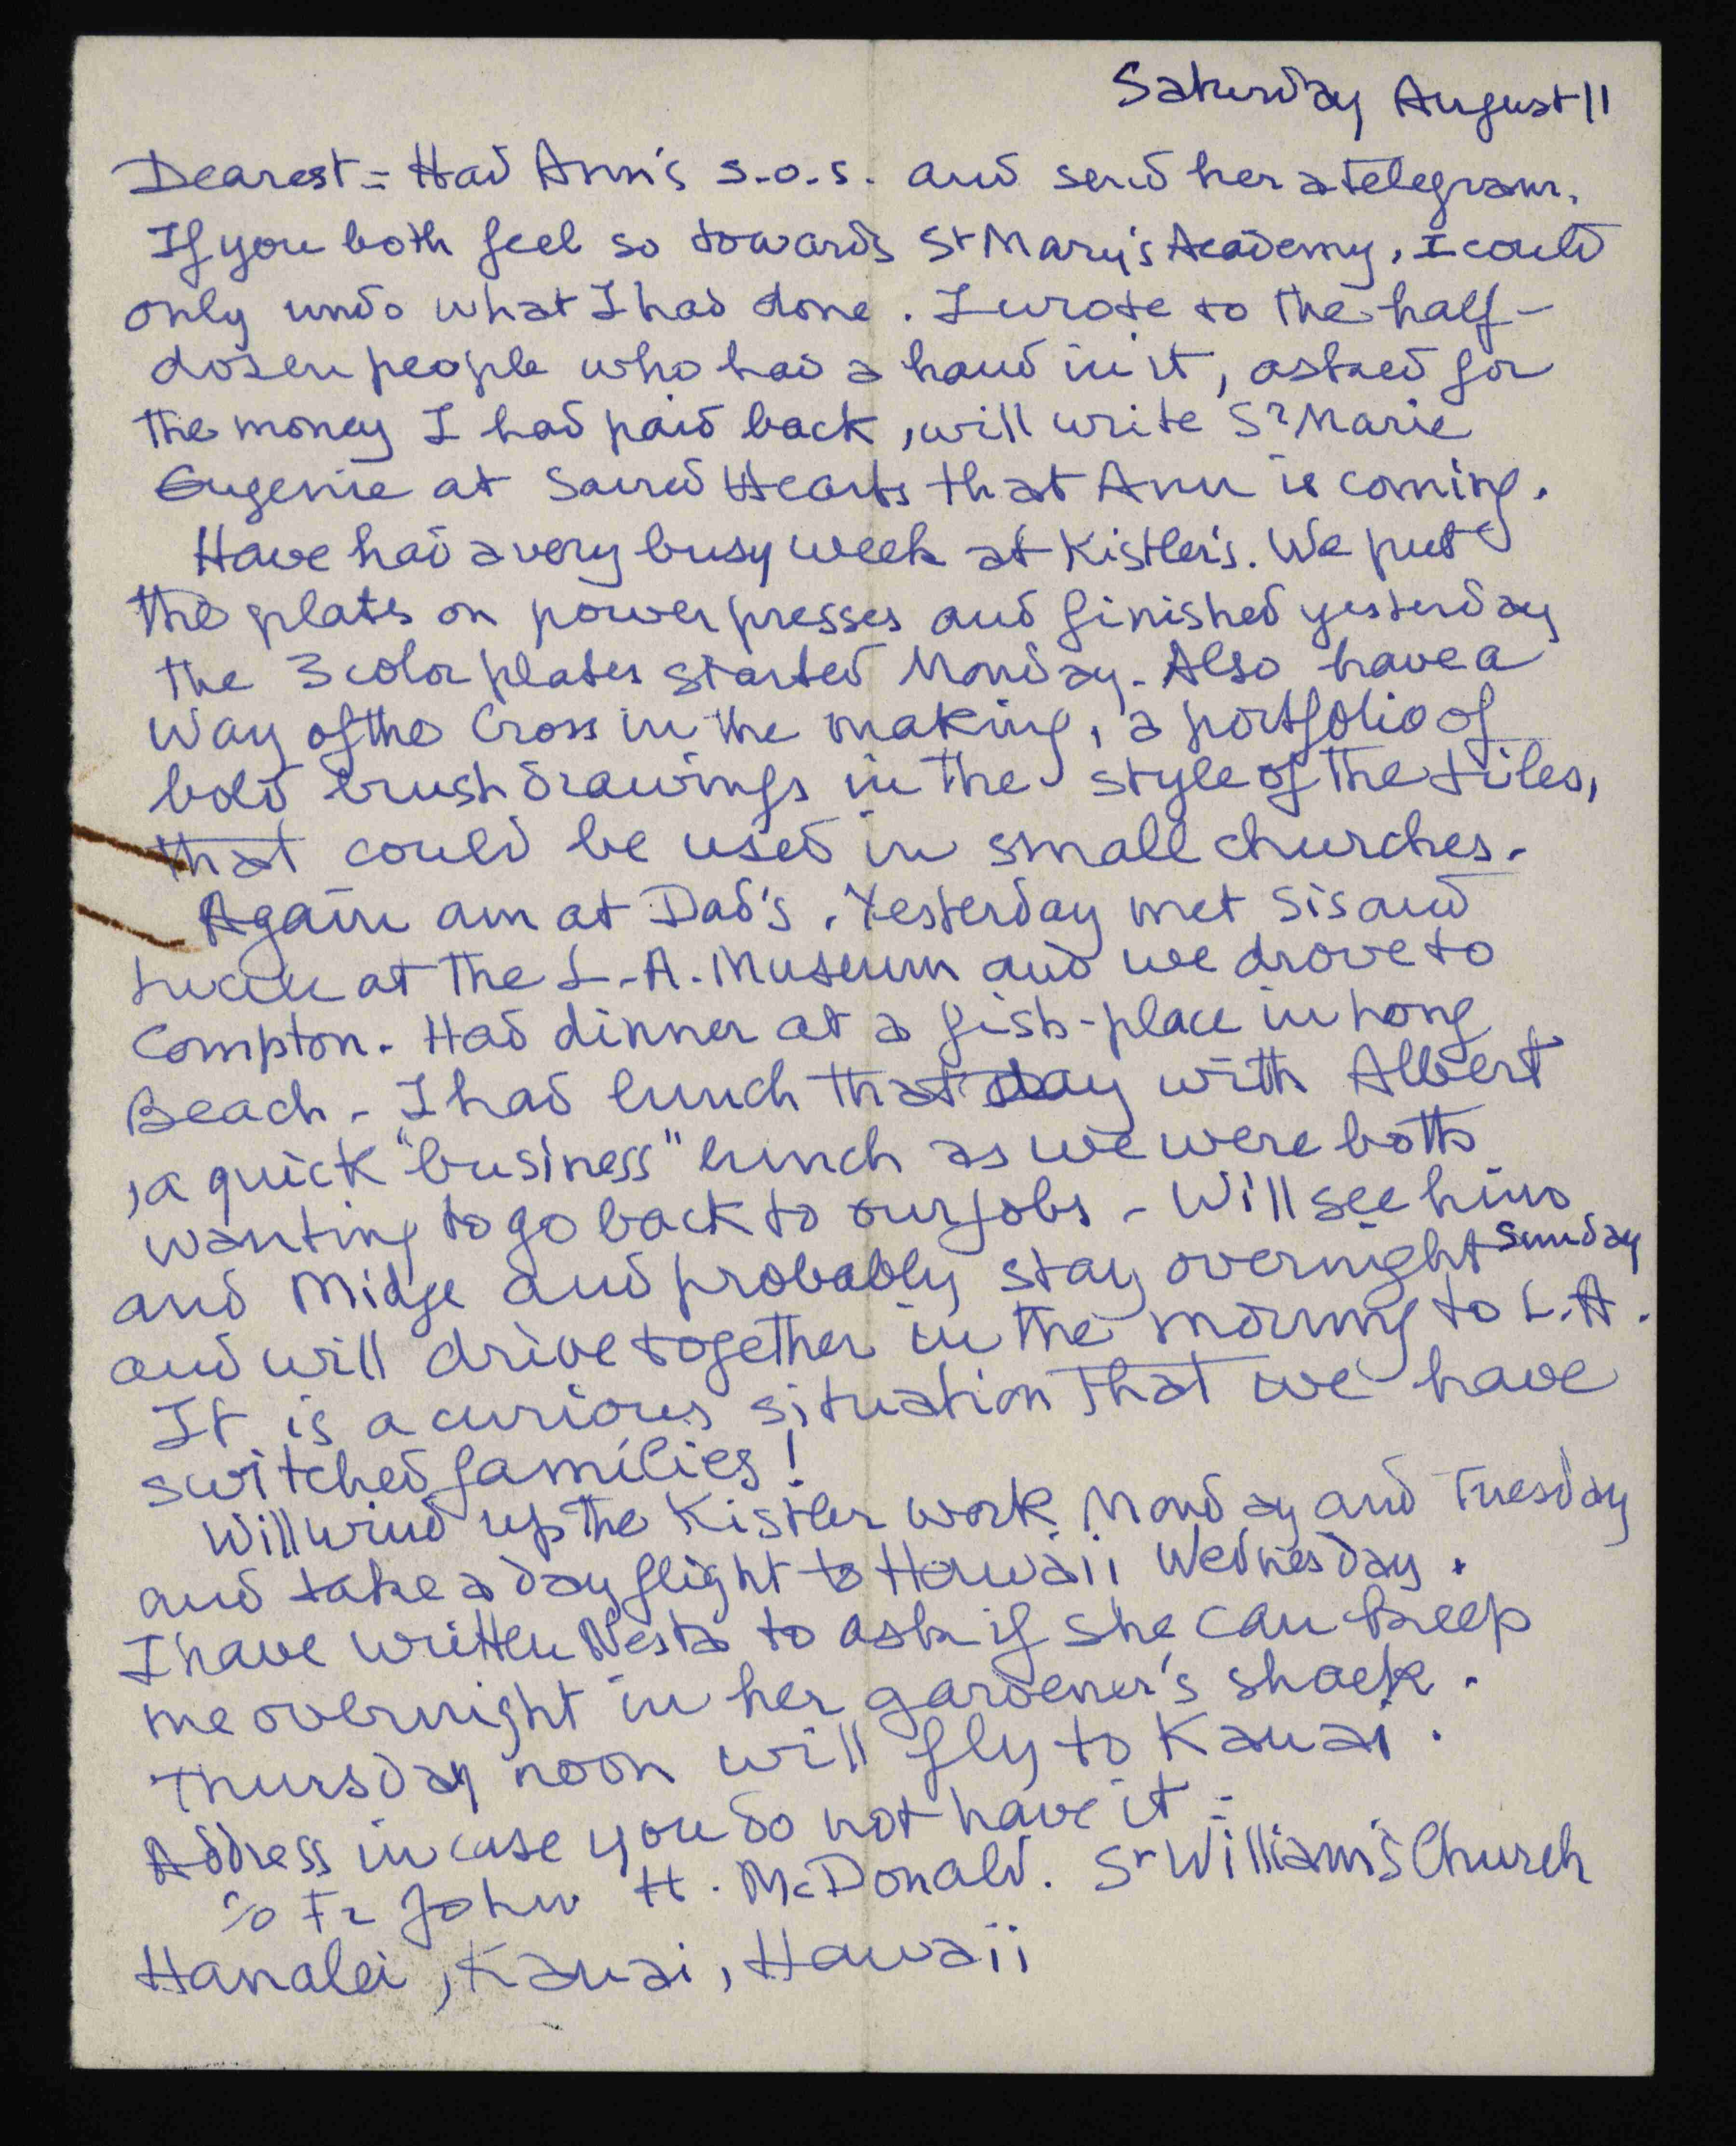 Saturday August 11
Dearest = Had Ann's s.o.s. and send her a telegram.
If you both feel so towards St Mary's Academy, I could
only undo what I had done. I wrote to the half-
dosen people who had a hand in it, asked for
the money I had paid back, will write Sr Marie
Eugenie at Sacred Hearts that Ann is coming.
Have had a very busy week at Kistler's. We put
the plates on power presses and finished yesterday
the 3 color plates started Monday. Also have a
Way of the Cross in the making, a portfolio of
bold brush drawings in the style of the tiles,
that could be used in small churches.
Again am at Dad's. Yesterday met Sis and
at the L.A. Museum and we drove to
Compton. Had dinner at a fish-place in Long
Beach - I had lunch that day with Albert
, a quick "business" lunch as we were both
wanting to go back to our jobs - Will see him
and Midge and probably stay overnight Sunday
and will drive together in the morning to L.A.
It is a curious situation that we have
switched families!
Will wind up the Kistler work Monday and Tuesday
and take a day flight to Hawaii Wednesday.
I have written Nesta to ask if she can keep
me overnight in her gardener's shack.
Thursday noon will fly to Kauai.
Address in case you do not have it -
c/o Fr John H. McDonald. St William's Church
Hanalei, Kauai, Hawaii